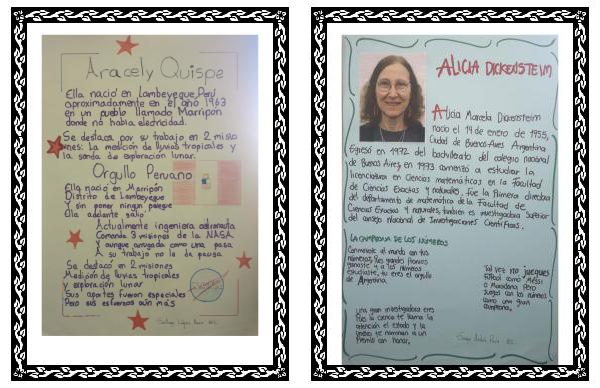 Aracely Quispe
Ella nació en Lambeyeque, Perú
aproximadamente en el año 1963
en un pueblo llamado Marripon
donde no había electricidad.
Se destaca por su trabajo en 2 misio
nes: La medición de lluvias tropicales y
la sonda de exploración lunar.
Orgullo Peruano
Ella nació en Marripón
Distrito de Lambeyeque
Y sin poner ningún
Ella adelante salió
Actualmente ingeniera astronauta
Comanda 3 misiones de la NASA
Y aunque arrugada como una pasa
A su trabajo no le da pausa
Se destacó en 2 misiones
Medición de lluvias tropicales
y exploración lunar
Sus aportes fueron especiales
Pero sus esfuerzos aún más
ALICIA DICKENSTEIN
Alicia Marcela Dickenstein
nació el 14 de enero de 1955,
Ciudad de Buenos Aires Argentina
Egresó en 1972 del bachillerato del colegio nacional
de Buenos Aires, en 1973 comenzó a estudiar la
licenciatura en Ciencias matemáticas en la facultad
de Ciencias Exactas y naturales. Fue la Primera directora
del departamento de matemática de la Facultad de
Ciencias Exactas y Naturales, también es investigadora Superior
del consejo nacional de Investigaciones Científicas.
LA CAMPEONA DE LOS NÚMEROS
números, les grandes premios
ganaste y a los números
estudiaste, tu eres el orgullo
de Argentina.
Tal vez no juegues
fútbol como "Messi"
o Maradona pero
juegas con los números
como una gran
campeona.
Una gran investigadora eres
Pues la ciencia te llama la
atención el estado y la
Unesco te nombran a un
Premio con honor.